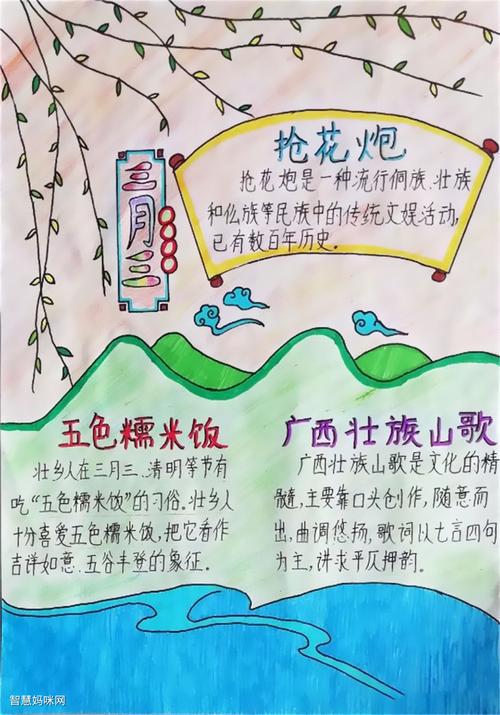 三月三
抢花炮
抢花炮是一种流行侗族、壮族
和仫族等民族中的传统文娱活动,
已有数百年历史。
五色糯米饭
壮乡人在三月三、清明等节有
吃“五色糯米饭”的习俗。壮乡人
十分喜爱五色糯米饭,把它看作
吉详如意、五谷丰登的象征。
广西壮族山歌
广西壮族山歌是文化的精
髓,主要靠口头创作,随意而
出,曲调悠扬,歌词以七言四句
为主,讲求平仄押韵。
智慧妈咪网